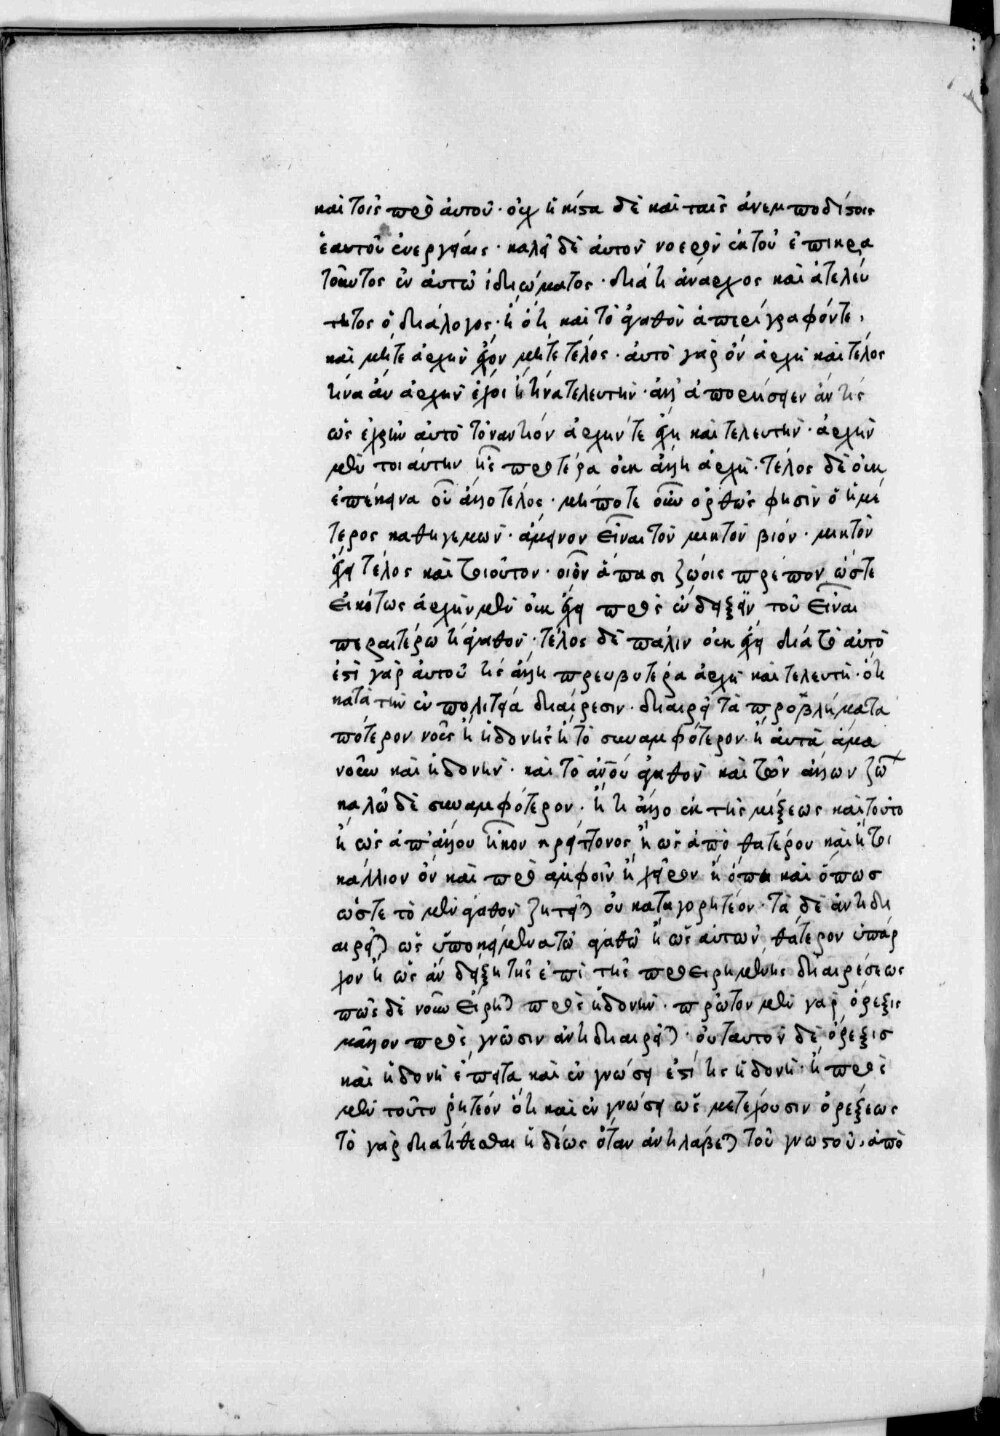 καὶ τοῖς πρὸ αὐτοῦ· οὐχ ἥκιστα δὲ καὶ ταῖς ἀνεμποδίστοις
ἑαυτοῦ ἐνεργείαις· καλεῖ δὲ αὐτὸν νοερὸν ἐκ τοῦ ἐπικρα
τοῦντος ἐν αὐτῷ ἰδιώματος· διὰ τί ἄναρχος καὶ ἀτελεύ
τητος ὁ διάλογος· ἢ ὅτι καὶ τὸ ἀγαθὸν ἀπερίγραφόν τε,
καὶ μήτε ἀρχὴν ἔχον μήτε τέλος· αὐτὸ γὰρ ὂν ἀρχὴ καὶ τέλος
τίνα ἂν ἀρχὴν ἔχοι ἢ τίνα τελευτήν· ἀλλ' ἀπορήσειεν ἄν τις
ὡς ἐχρῆν αὐτὸ τοὐναντίον ἀρχήν τε ἔχειν καὶ τελευτήν· ἀρχὴν
μὲν τοιαύτην ἧς προτέρα οὐκ ἄλλη ἀρχή· τέλος δὲ οὐκ
ἐπέκεινα οὗ ἄλλο τέλος· μήποτε οὖν ὀρθῶς φησιν ὁ ἡμέ
τερος καθηγεμών· ἄμεινον εἶναι τὸν μικτὸν βίον· μικτὸν
ἔχει τέλος καὶ τοιοῦτον· οἷον ἅπασι ζώοις πρέπον ὥστε
εἰκότως ἀρχὴν μὲν οὐκ ἔχει πρὸς ἔνδειξιν τοῦ εἶναι
περαιτέρω τἀγαθόν· τέλος δὲ πάλιν οὐκ ἔχει διὰ τὸ αὐτὸ
ἔστι γὰρ αὐτοῦ τις ἄλλη πρεσβυτέρα ἀρχὴ καὶ τελευτή· ὅτι
κατὰ τὴν ἐν πολιτείᾳ διαίρεσιν· διαιρεῖ τὰ προβλήματα
πότερον νοῦς ἢ ἡδονὴ ἢ τὸ συναμφότερον· ἢ αὐτὰ ἅμα
νοῦν καὶ ἡδονήν· καὶ τὸ ἀνθρώπου ἀγαθὸν καὶ τῶν ἄλλων ζῴ
καλῶ δὲ συναμφότερον· ἤ τι ἄλλο ἐκ τῆς μίξεως καὶ τοῦτο
ἢ ὡς ἀπ' ἄλλου κρείττονος ἢ ὡς ἀπὸ θατέρου καὶ ἤτοι
κάλλιον ὂν καὶ πρὸ ἀμφοῖν ἢ χεῖρον ἢ ὅπη καὶ ὅπωσ
ὥστε τὸ μὲν ἀγαθὸν ζητεῖται οὐ κατηγορητέον· τὰ δὲ ἀντιδι
αιρεῖται ὡς ὑποκείμενα τῷ ἀγαθῷ ἢ ὡς αὐτῶν θάτερον ὑπάρ
χον ἢ ὡς ἂν δείξῃ τῆς ἐπὶ τῆς προειρημένης διαιρέσεως
πῶς δὲ νοῦν εἴρηται πρὸς ἡδονήν· πρῶτον μὲν γὰρ ὄρεξις
μᾶλλον πρὸς γνῶσιν ἀντιδιαιρεῖται· οὐ ταυτὸν δὲ ὄρεξισ
καὶ ἡδονὴ ἔπειτα καὶ ἐν γνώσει ἐστί τις ἡδονή· ἢ πρὸς
μὲν τοῦτο ῥητέον ὅτι καὶ ἐν γνώσει ὡς μετέχουσιν ὀρέξεως
τὸ γὰρ διατίθεσθαι ἡδέως ὅταν ἀντιλάβηται τοῦ γνωστοῦ, ἀπὸ